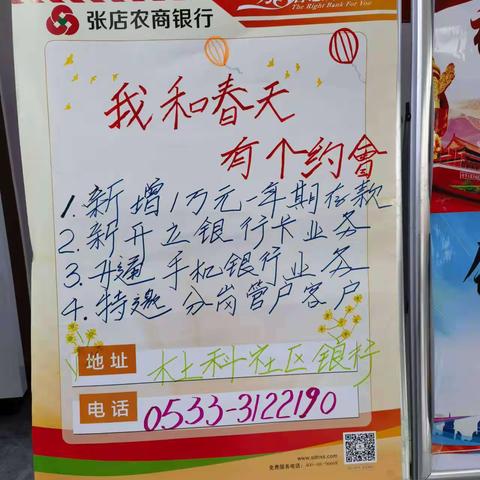 张店农商银行
The Right Bank For You
我和春天
有个约會
1.新增1万元一年期存款
2.新开立银行卡业务
3.开通手机银行业务
4.特邀分岗管户客户
地址 杜科社区银行
电话 0533-3122190